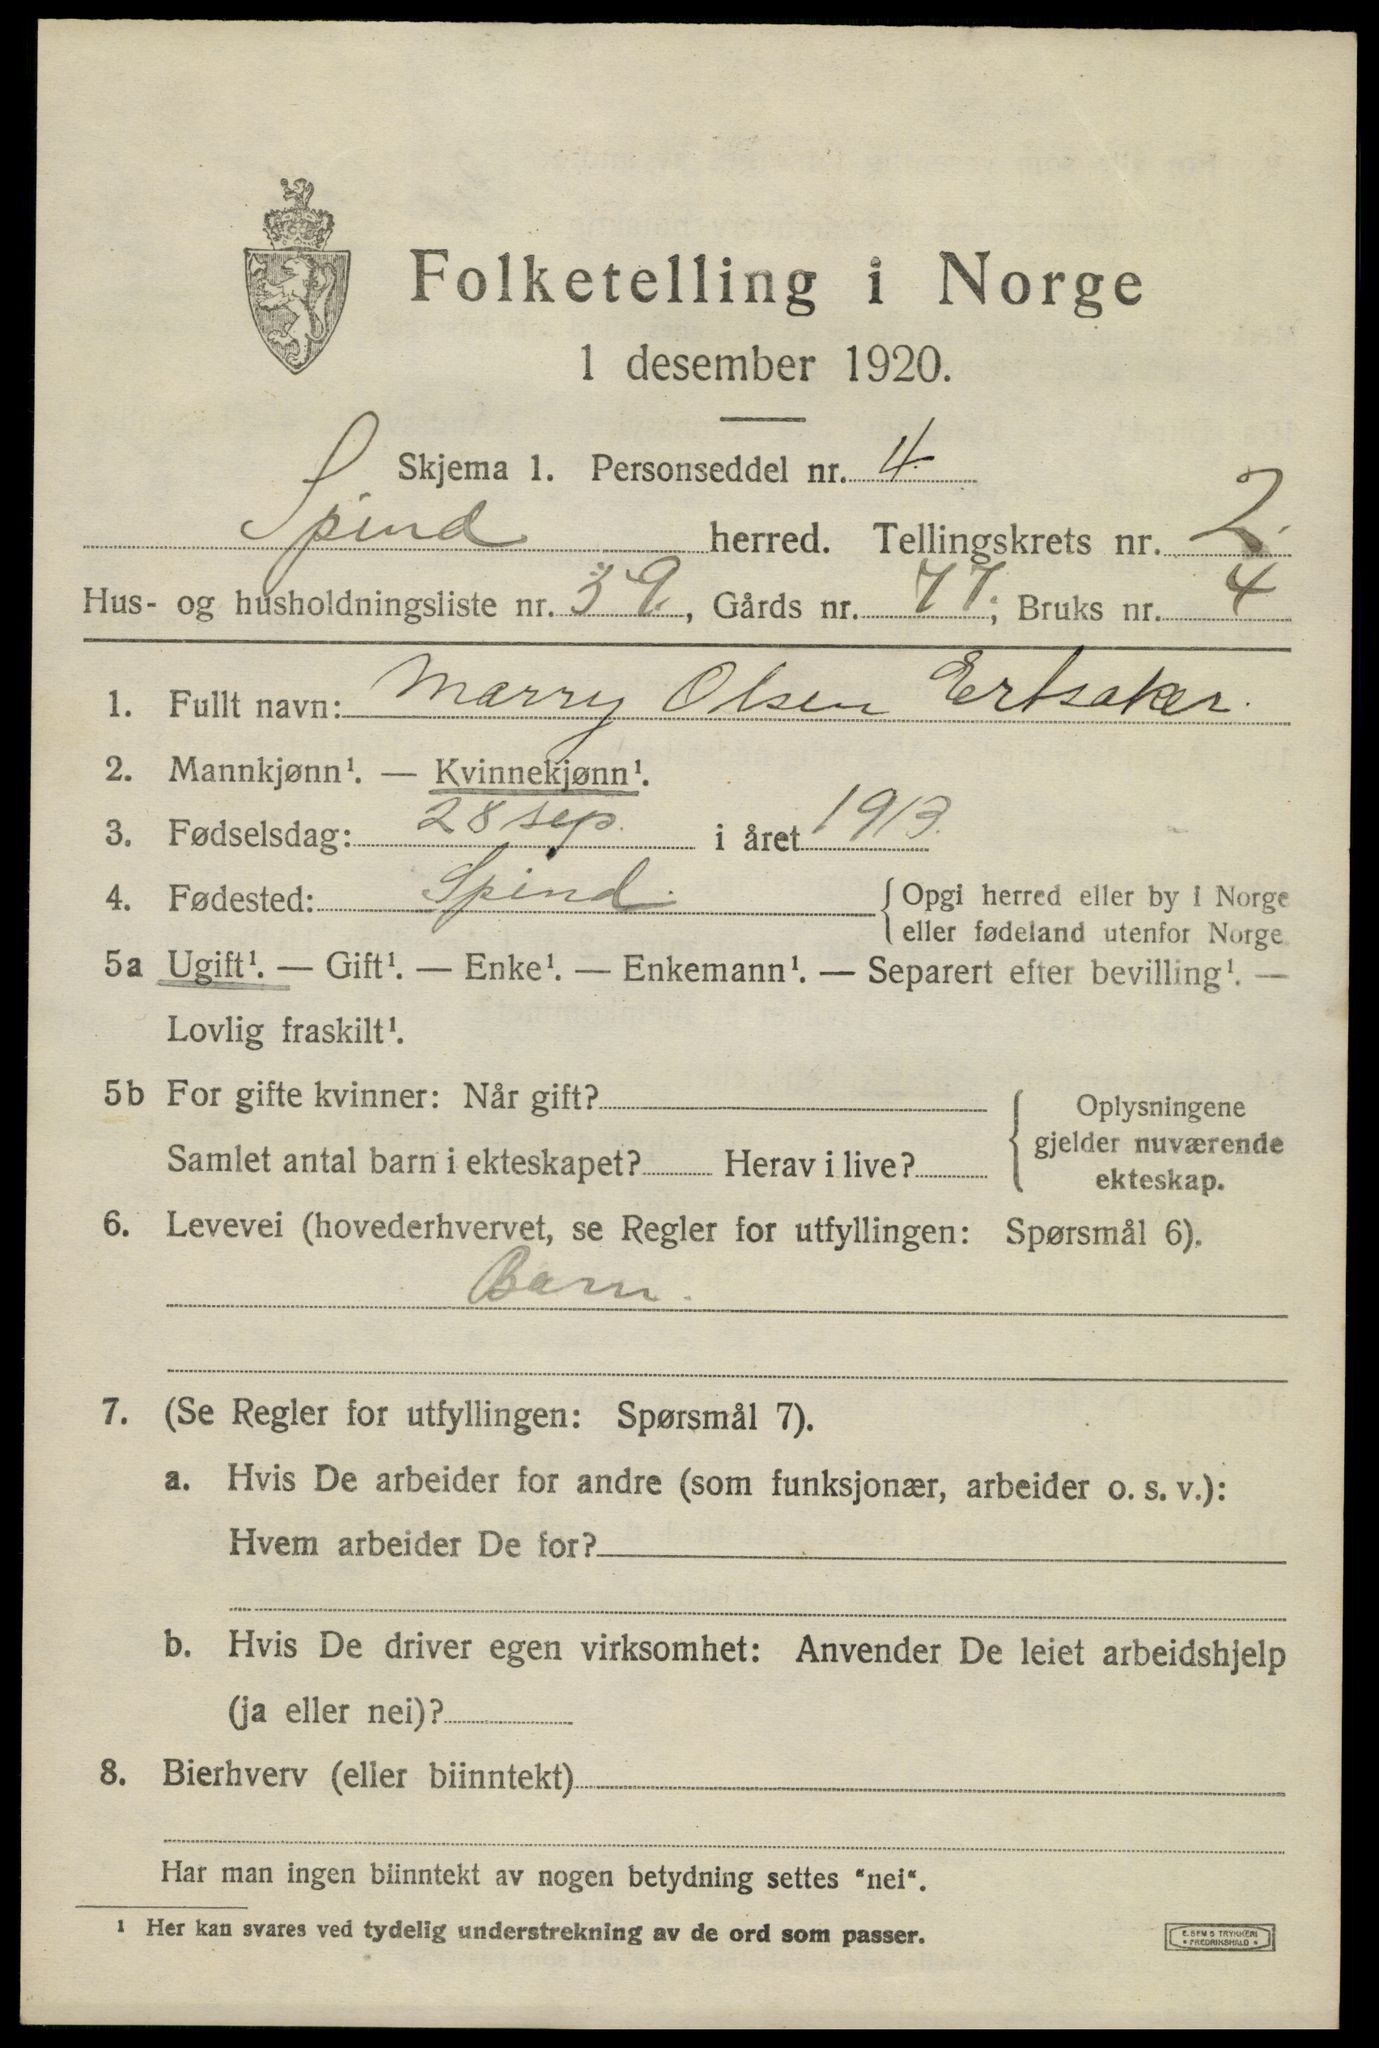 Folketelling i Norge
1 desember 1920.
Skjema 1. Personseddel nr. 4.
Spind herred. Tellingskrets nr. 2.
Hus- og husholdningsliste nr. 39, Gårds nr. 77; Bruks nr. 4
1. Fullt navn: Marry Olsen Ertsaker.
2. Mannkjønn¹. — Kvinnekjønn¹.
3. Fødselsdag: 28 sep. i året 1913.
4. Fødested: Spind. { Opgi herred eller by i Norge
eller fødeland utenfor Norge
5a Ugift¹. — Gift¹. — Enke¹. — Enkemann¹. — Separert efter bevilling¹. —
Lovlig fraskilt¹.
5b For gifte kvinner: Når gift? { Oplysningene
gjelder nuværende
Samlet antal barn i ekteskapet? Herav i live?
ekteskap.
6. Levevei (hovederhvervet, se Regler for utfyllingen: Spørsmål 6).
Barn.
7. (Se Regler for utfyllingen: Spørsmål 7).
a. Hvis De arbeider for andre (som funksjonær, arbeider o. s. v.):
Hvem arbeider De for?
b. Hvis De driver egen virksomhet: Anvender De leiet arbeidshjelp
(ja eller nei)?
8. Bierhverv (eller biinntekt)
Har man ingen biinntekt av nogen betydning settes "nei".
¹ Her kan svares ved tydelig understrekning av de ord som passer.
E. SEM'S TRYKKERI
• FREDRIKSHALD •